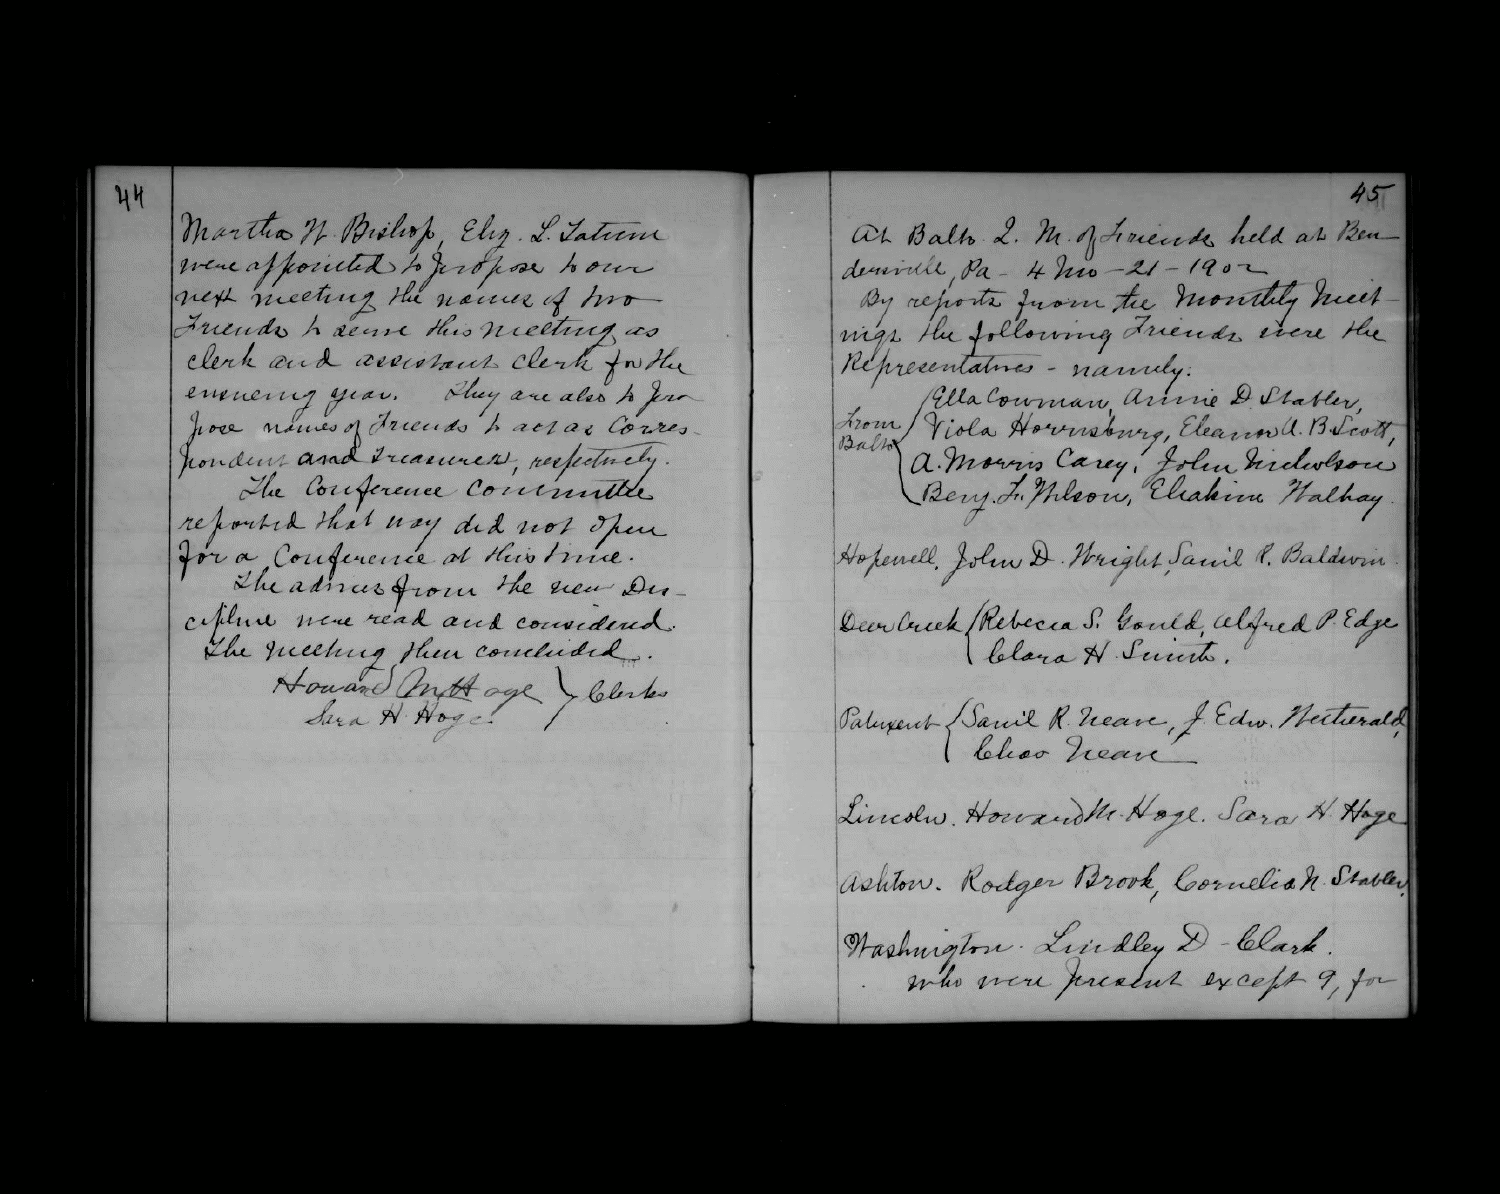 44
Martha W. Bishop, Eliz. L. Tatum
were appointed to propose to our
next meeting the names of two
Friends to serve this meeting as
clerk and assistant clerk for the
ensueing year. They are also to pro
pose names of Friends to act as Corres-
pondent and Treasurer, respectively.
The Conference Committee
reported that way did not open
for a Conference at this time.
The advices from the new Dis-
cipline were read and considered.
The meeting then concluded.
Howard M Hoge } Clerks
Sara H. Hoge
45
At Balto. Q. M. of Friends held at Ben-
dersville, Pa - 4 Mo - 21 - 1902
By reports from the Monthly Meet-
ings the following Friends were the
Representatives - namely:
Ella Cowman, Annie D. Stabler,
From Viola Hornsburg, Eleanor A. B. Scott,
Balto A. Morris Carey, John Nicholson
Benj. F. Wilson, Eliakim Walhay.
Hopewell, John D. Wright, Saml R. Baldwin.
Deer Creek { Rebecca S. Gould, Alfred P. Edge
Clara H. Smith.
Patuxent { Saml R. Neave, J. Edw. Wetherald,
Chas Neave
Lincoln. Howard M. Hoge. Sara H. Hoge
Ashton. Rodger Brook, Cornelia N. Stabler.
Washington. Lindley D - Clark.
who were present except 9, for